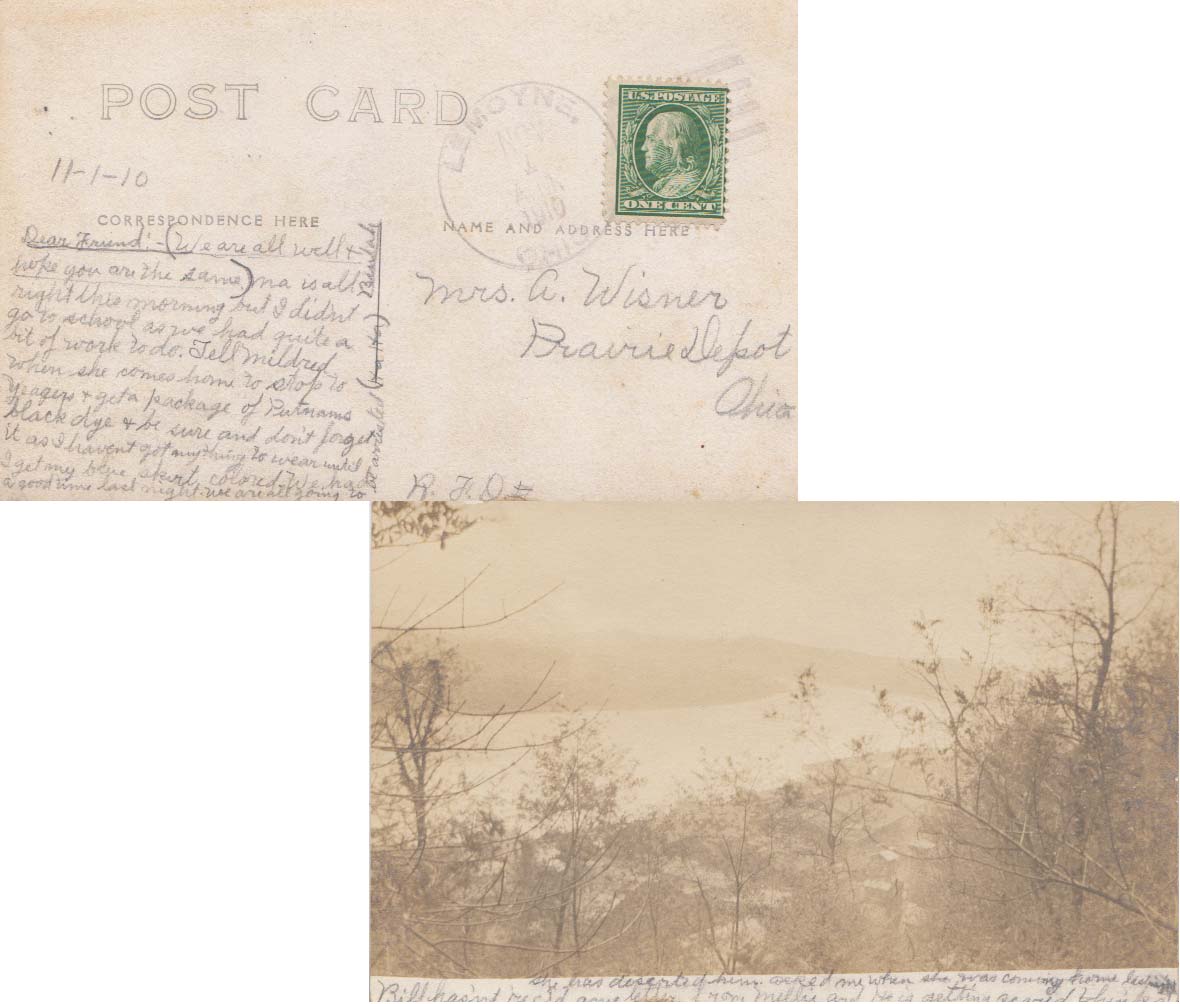 POST CARD
LEMOYNE,
NOV
1
1910
OHIO
U.S. POSTAGE
ONE CENT
11-1-10
CORRESPONDENCE HERE
NAME AND ADDRESS HERE
Dear Friend:-(We are all well &
hope you are the same) ma is all
right this morning but I didn't
go to school as we had quite a
bit of work to do. Tell Mildred
when she comes home to stop to
Yeagers & get a package of Putnams
black dye & be sure and don't forget
it as I havent got anything to wear until
I get my blue skirt colored. We had
a good time last night. we are all going to
be arrested (ha ha)
Mrs. A. Wisner
Prairie Depot
Ohio
R. F. D. #
she has deserted him. asked me when she was coming home
Bill hasn't rec'd any letter from Mellie and He is getting